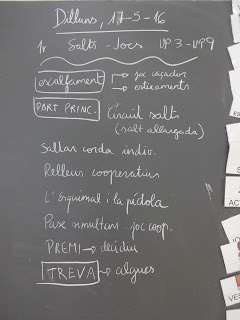 Dilluns, 17-5-16
1r Salts - Jocs UP3 - UP9
escalfament → joc caçador
→ estiraments
PART PRINC. Circuit salts
(salt allargada)
Saltar corda indiv.
Relleus cooperatius
L'Esquimal i la pídola
Passe simultani joc coop.
PREMI → decidiu
TREVA → algues